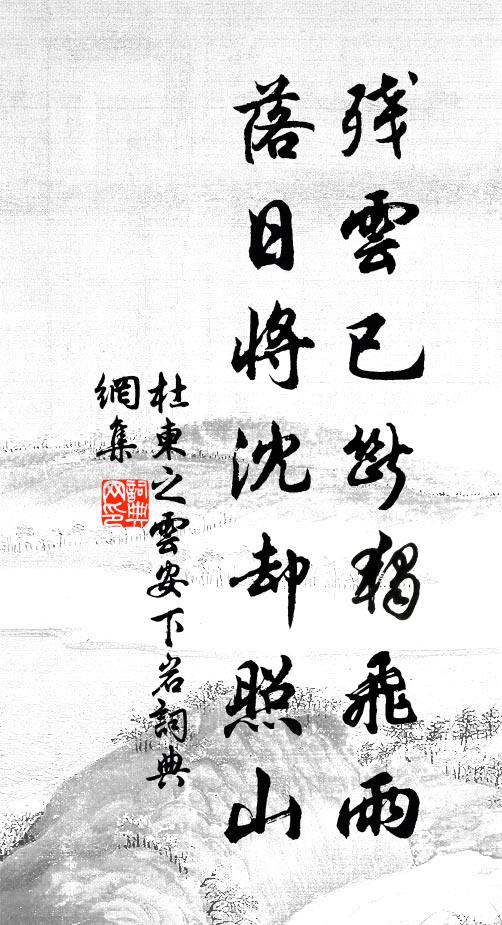 残雲已断獨飛雨
落日将沈却照山
杜東之雲安下岩詞典
網集
詞典
网印